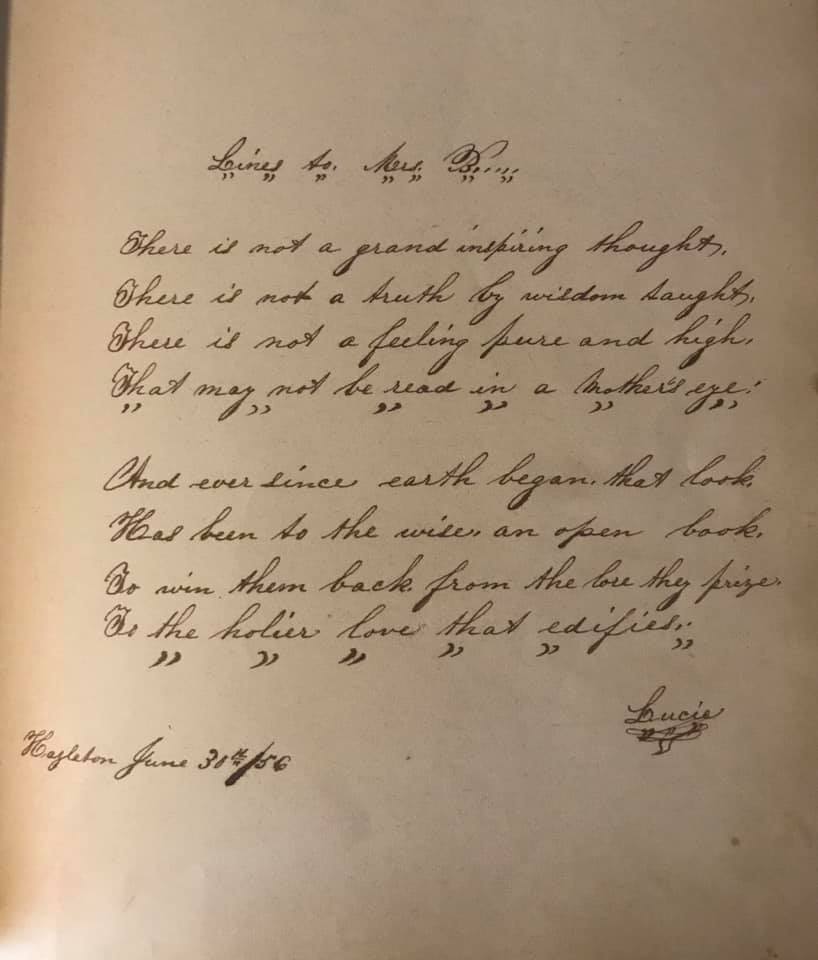 Lines to. Mrs. B.....
There is not a grand inspiring thought,
There is not a truth by wisdom taught,
There is not a feeling pure and high,
That may not be read in a Mother's eye:
And ever since earth began, that look,
Has been to the wise, an open book,
To win them back from the lore they prize
To the holier love that edifies.
Lucie
Hazleton June 30th/56